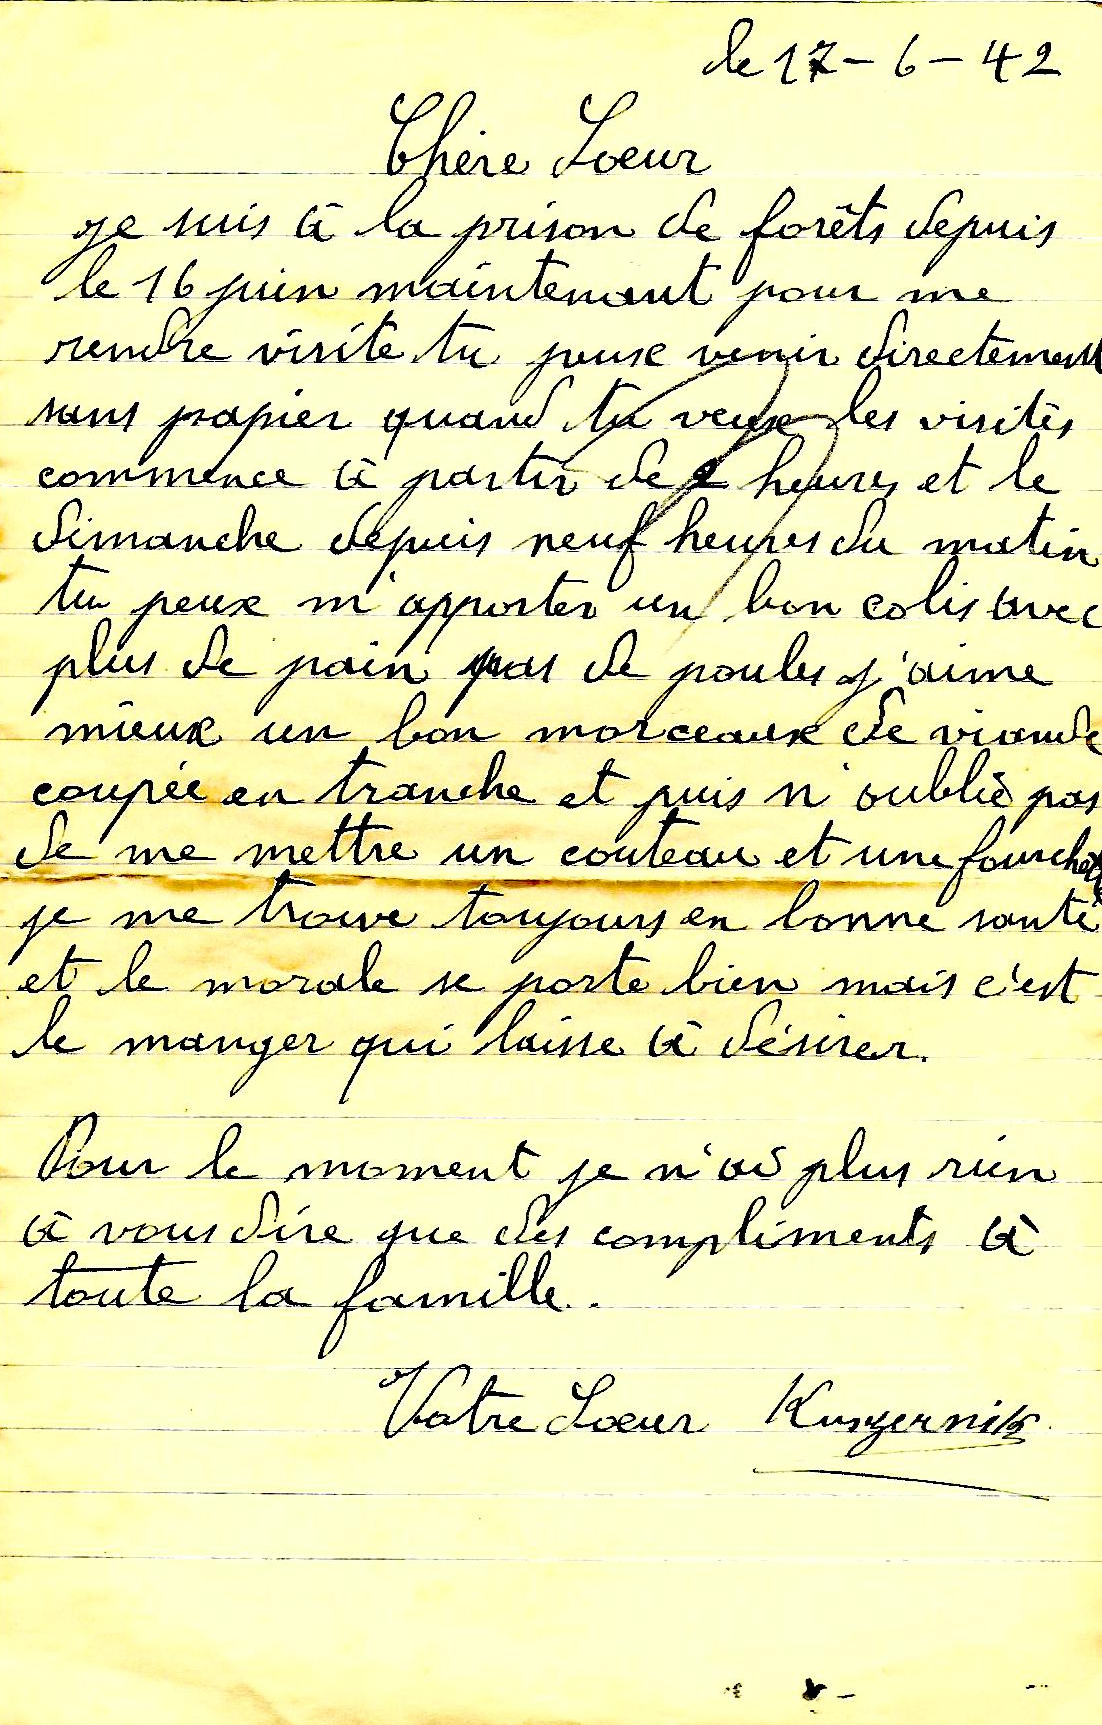 le 17-6-42
Chère Soeur
je suis à la prison de forêts depuis
le 16 juin maintenant pour me
rendre visite tu peux venir directement
sans papier quand tu veux les visites
commence à partir de 2 heures et le
dimanche depuis neuf heures du matin
tu peux m'apporter un bon colis avec
plus de pain pas de poules j'aime
mieux un bon morceaux de viande
coupée en tranche et puis n'oubliè pas
de me mettre un couteau et une fourchette
je me trouve toujours en bonne santé
et le morale se porte bien mais c'est
le manger qui laisse à désirer.
Pour le moment je n'ai plus rien
à vous dire que des compliments à
toute la famille..
Votre Soeur Kuszernik